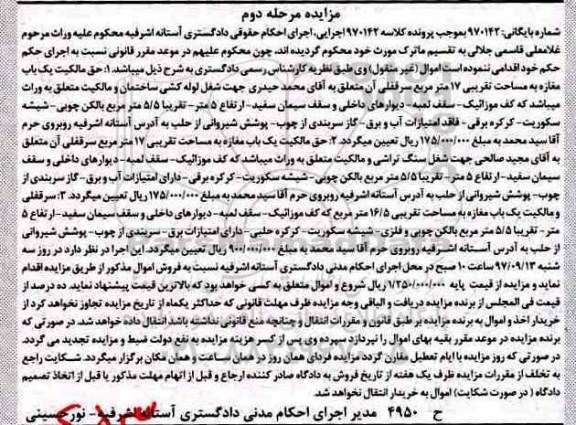 مزایده مرحله دوم
شماره بایگانی: ۹۷۰۱۴۲ بموجب پرونده کلاسه ۹۷۰۱۴۲ اجرایی، اجرای احکام حقوقی دادگستری آستانه اشرفیه محکوم علیه وراث مرحوم
غلامعلی قاسمی جلالی به تقسیم ماترک مورث خود محکوم گردیده اند، چون محکوم علیهم در موعد مقرر قانونی نسبت به اجرای حکم
حکم خود اقدامی ننموده است اموال (غیر منقول) وی طبق نظریه کارشناس رسمی دادگستری به شرح ذیل میباشد: ۱: حق مالکیت یک باب
مغازه به مساحت تقریبی ۱۷ متر مربع سرقفلی آن متعلق به آقای محمد حیدری جهت شغل لوله کشی ساختمان و مالکیت متعلق به وراث
میباشد که کف موزائیک- سقف لمبه- دیوارهای داخلی و سقف سیمان سفید- ارتفاع ۵ متر- تقریبا ۵/۵ متر مربع بالکن چوبی- شیشه
سکوریت- کرکره برقی- فاقد امتیازات آب و برق- گاز سربندی از چوب- پوشش شیروانی از حلب به آدرس آستانه اشرفیه روبروی حرم
آقا سید محمد به مبلغ ۱۷۵/۰۰۰/۰۰۰ ریال تعیین میگردد. ۲: حق مالکیت یک باب مغازه به مساحت تقریبی ۱۷ متر مربع سرقفلی آن متعلق
به آقای مجید صالحی جهت شغل سنگ تراشی و مالکیت متعلق به وراث میباشد که کف موزائیک- سقف لمبه- دیوارهای داخلی و سقف
سیمان سفید- ارتفاع ۵ متر- تقریبا ۵/۵ متر مربع بالکن چوبی- شیشه سکوریت- کرکره برقی- دارای امتیازات آب و برق- گاز سربندی از
چوب- پوشش شیروانی از حلب به آدرس آستانه اشرفیه روبروی حرم آقا سید محمد به مبلغ ۱۷۵/۰۰۰/۰۰۰ ریال تعیین میگردد. ۳: سرقفلی
و مالکیت یک باب مغازه به مساحت تقریبی ۱۶/۵ متر مربع که کف موزائیک- سقف لمبه- دیوارهای داخلی و سقف سیمان سفید- ارتفاع ۵
متر- تقریبا ۵/۵ متر مربع بالکن چوبی و فلزی- شیشه سکوریت- کرکره حلبی- دارای امتیازات برق- سربندی از چوب- پوشش شیروانی
از حلب به آدرس آستانه اشرفیه روبروی حرم آقا سید محمد به مبلغ ۹۰۰/۰۰۰/۰۰۰ ریال تعیین میگردد. این اجرا در نظر دارد در روز سه
شنبه ۹۷/۰۹/۱۳ ساعت ۱۰ صبح در محل اجرای احکام مدنی دادگستری آستانه اشرفیه نسبت به فروش اموال مذکور از طریق مزایده اقدام
نماید و مزایده از قیمت پایه ۱/۲۵۰/۰۰۰/۰۰۰ ریال شروع و اموال متعلق به کسی خواهد بود که بالاترین قیمت پیشنهاد نماید. ده درصد از
قیمت فی المجلس از برنده مزایده دریافت و الباقی وجه مزایده ظرف مهلت قانونی که حداکثر یکماه از تاریخ مزایده تجاوز نخواهد کرد از
خریدار اخذ و اموال به برنده مزایده بر طبق قانون و مقررات انتقال و چنانچه منع قانونی نداشته باشد انتقال داده خواهد شد. در صورتی که
برنده مزایده در موعد مقرر بقیه بهای اموال را نپردازد سپرده وی پس از کسر هزینه مزایده به نفع دولت ضبط و مزایده تجدید می گردد.
در صورتی که روز مزایده با ایام تعطیل مقارن گردد مزایده فردای همان روز در همان ساعت و همان مکان برگزار میگردد. شکایت راجع
به تخلف از مقررات مزایده ظرف یک هفته از تاریخ فروش به دادگاه صادر کننده ارجاع و قبل از اتهام مهلت مذکور یا قبل از اتخاذ تصمیم
دادگاه (در صورت شکایت) اموال به خریدار انتقال نخواهد شد.
ح ۴۹۵۰ مدیر اجرای احکام مدنی دادگستری آستانه اشرفیه- نورحسینی